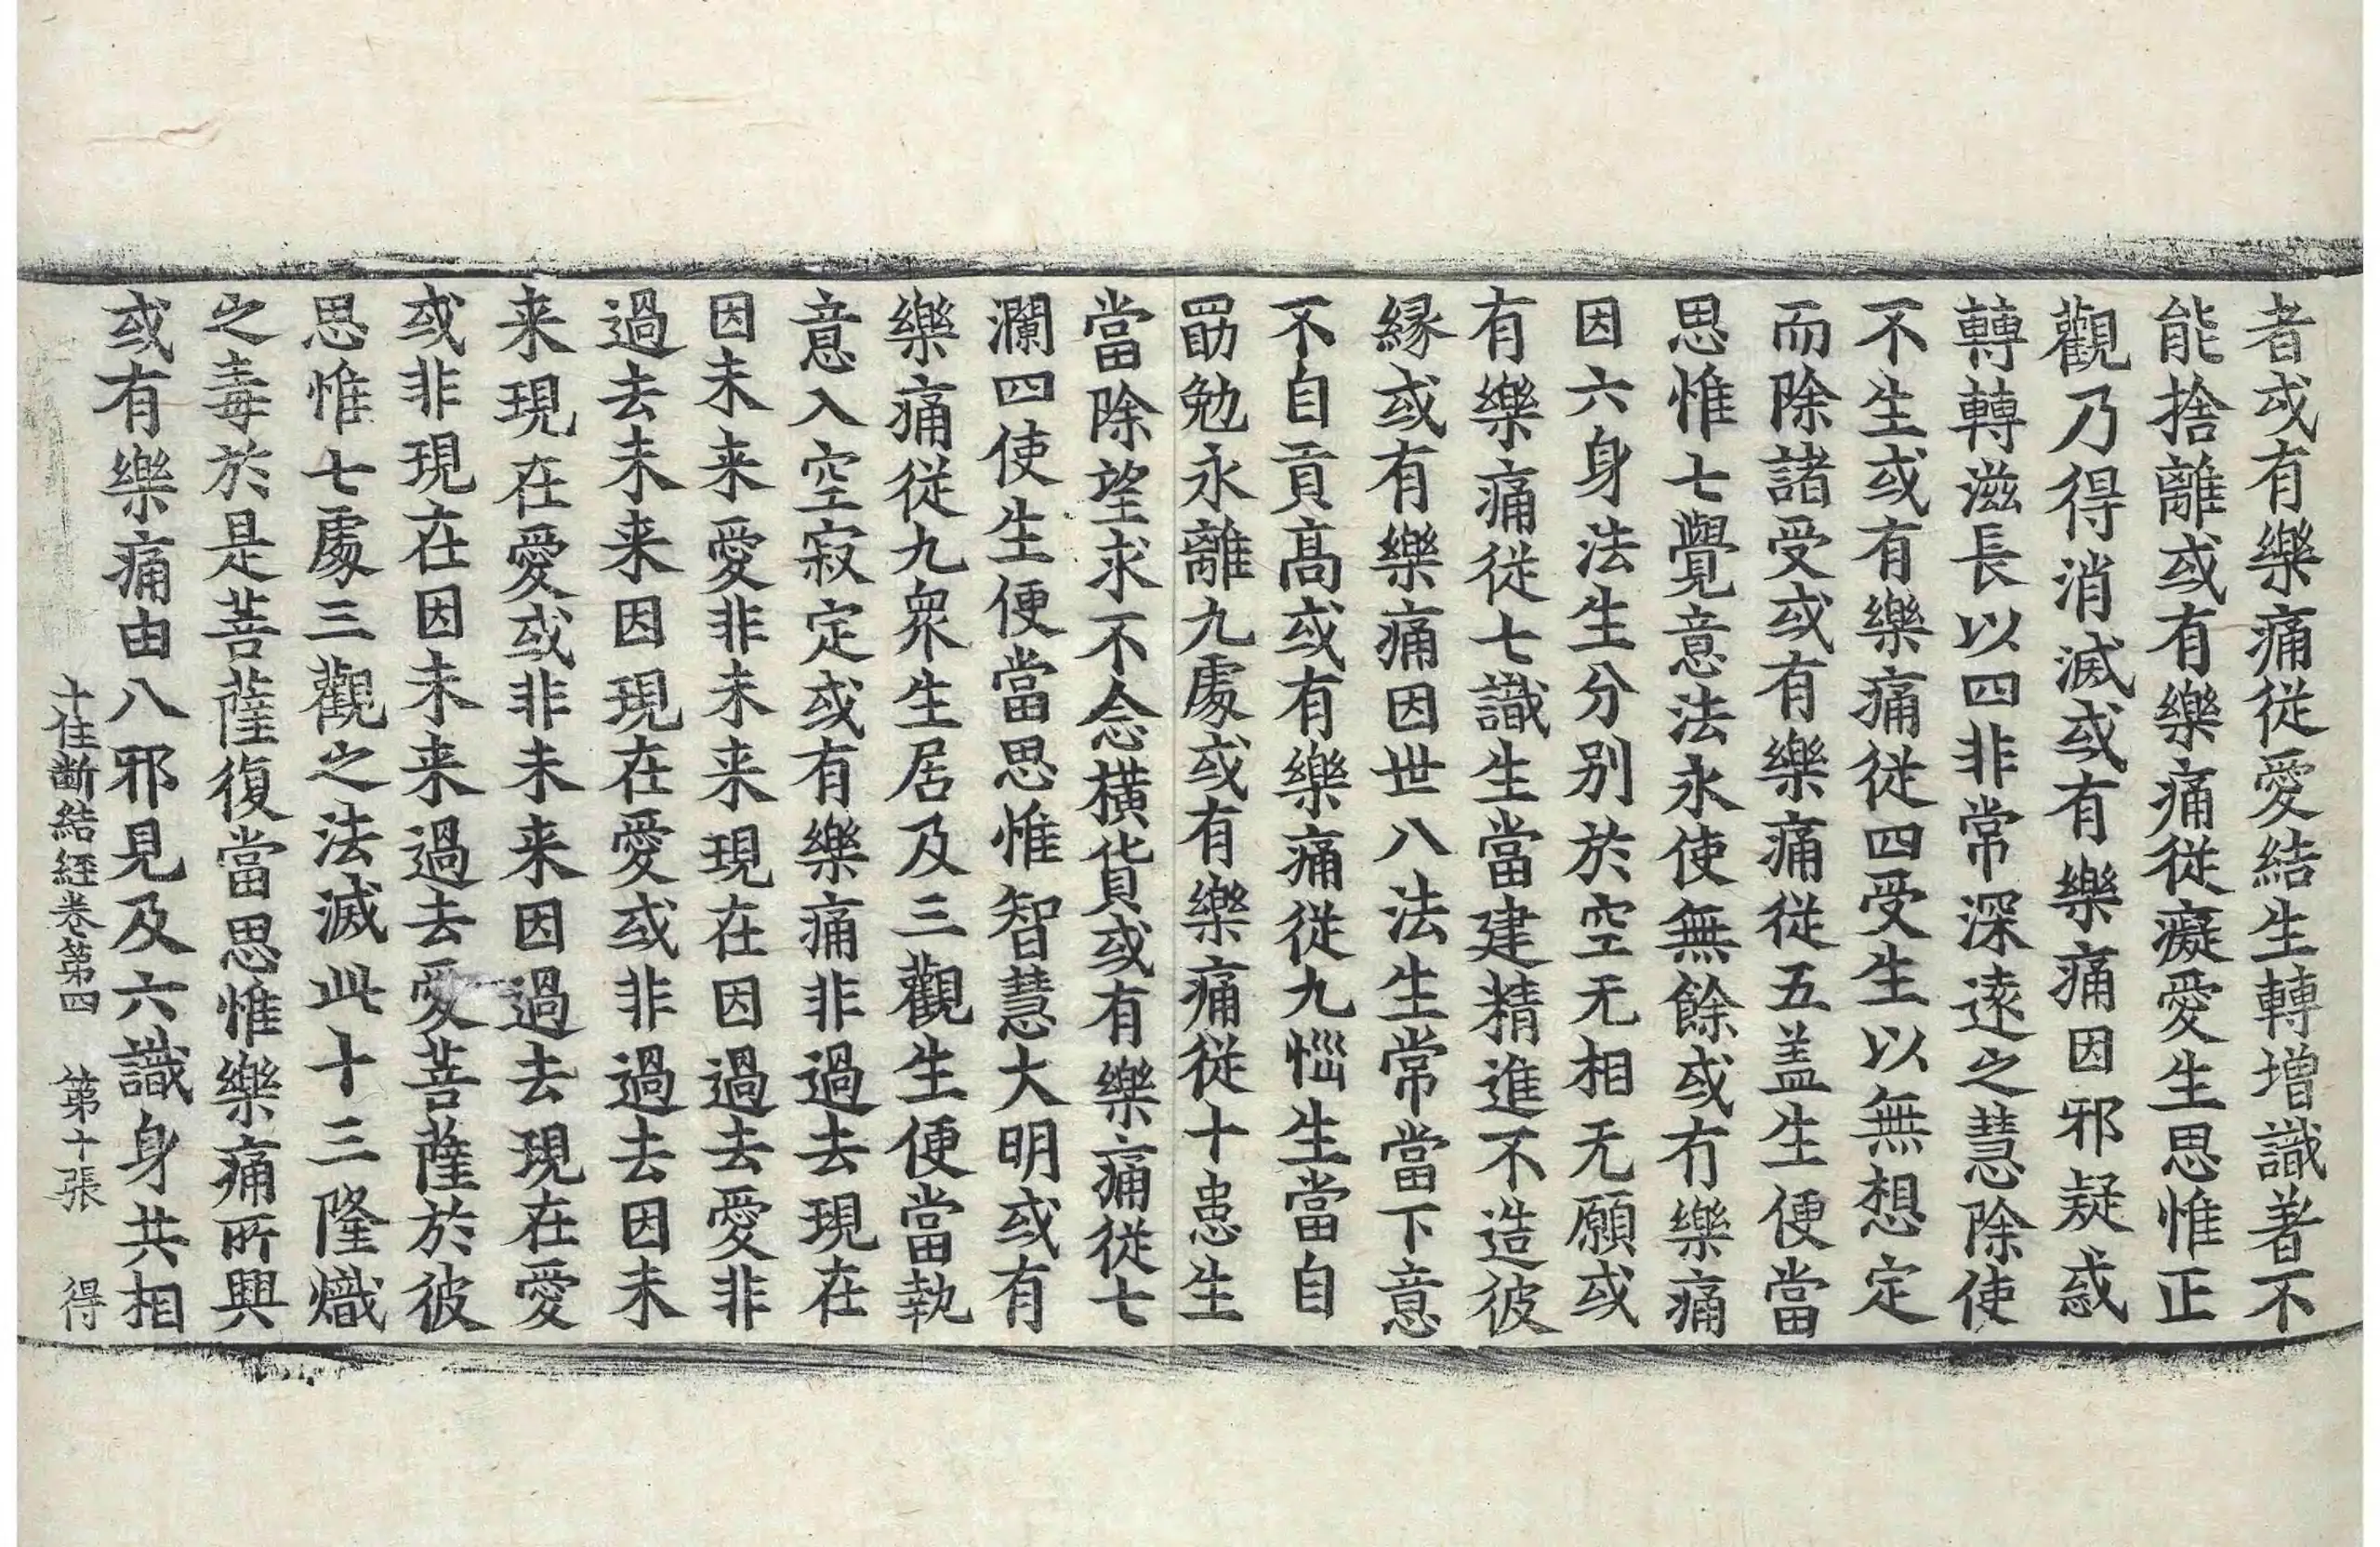 者或有樂痛従愛結生轉增識著不
能捨離或有樂痛従癡愛生思惟正
觀乃得消滅或有樂痛因邪疑惑
轉轉滋長以四非常深遠之慧除使
不生或有樂痛従四受生以無想定
而除諸受或有樂痛従五盖生便當
思惟七覺意法永使無餘或有樂痛
因六身法生分別於空无相无願或
有樂痛従七識生當建精進不造彼
縁或有樂痛因世八法生常當下意
不自貢髙或有樂痛従九惱生當自
勖勉永離九處或有樂痛従十恚生
當除望求不念橫貨或有樂痛従七
瀾四使生便當思惟智慧大明或有
樂痛従九衆生居及三觀生便當執
意入空寂定或有樂痛非過去現在
因未来愛非未来現在因過去愛非
過去未来因現在愛或非過去因未
来現在愛或非未来因過去現在愛
或非現在因未来過去愛菩薩於彼
思惟七處三觀之法滅此十三隆熾
之毒於是菩薩復當思惟樂痛所興
或有樂痛由八邪見及六識身共相
十住斷結經卷第四 第十張 得